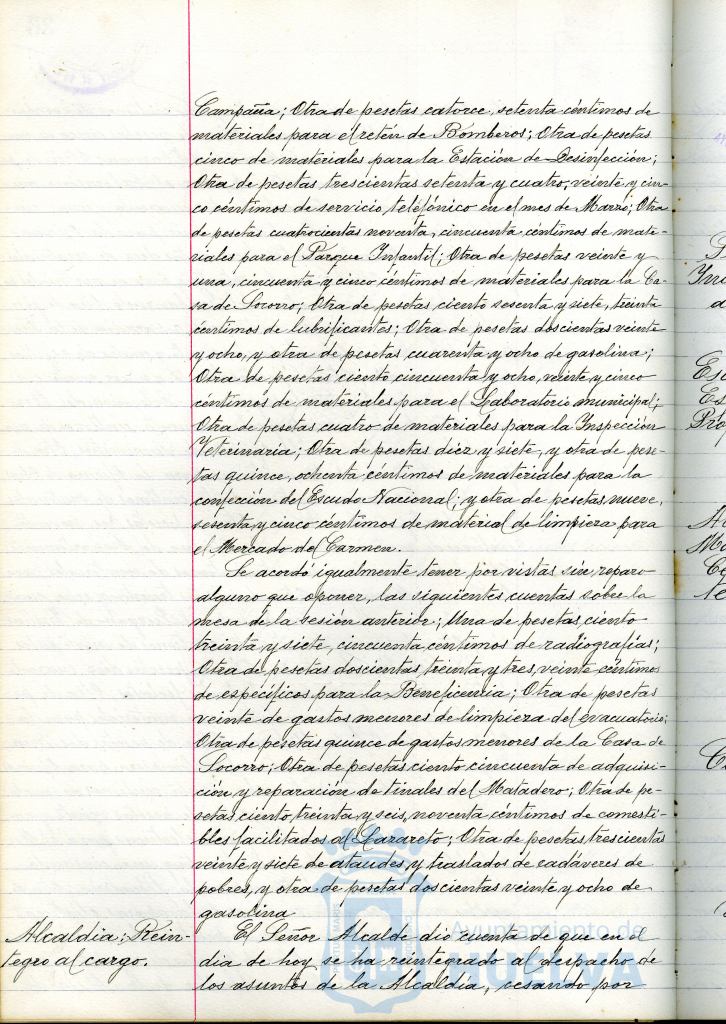 Campaña; Otra de pesetas catorce, setenta céntimos de
materiales para el retén de Bomberos; Otra de pesetas
cinco de materiales para la Estación de Desinfección;
Otra de pesetas trescientas setenta y cuatro, veinte y cin-
co céntimos de servicio telefónico en el mes de Marzo; Otra
de pesetas cuatrocientas noventa, cincuenta céntimos de mate-
riales para el Parque Infantil; Otra de pesetas veinte y
una, cincuenta y cinco céntimos de materiales para la Ca-
sa de Socorro; Otra de pesetas ciento sesenta y siete, treinta
céntimos de lubrificantes; Otra de pesetas doscientas veinte
y ocho, y otra de pesetas cuarenta y ocho de gasolina;
Otra de pesetas ciento cincuenta y ocho, veinte y cinco
céntimos de materiales para el Laboratorio municipal;
Otra de pesetas cuatro de materiales para la Inspección
Veterinaria; Otra de pesetas diez y siete, y otra de pese-
tas quince, ochenta céntimos de materiales para la
confección del Escudo Nacional; y otra de pesetas nueve,
sesenta y cinco céntimos de material de limpieza para
el Mercado del Carmen.
Se acordó igualmente tener por vistas sin reparo
alguno que oponer, las siguientes cuentas sobre la
mesa de la sesión anterior; Una de pesetas ciento
treinta y siete, cincuenta céntimos de radiografías;
Otra de pesetas doscientas treinta y tres, veinte céntimos
de específicos para la Beneficencia; Otra de pesetas
veinte de gastos menores de limpieza del evacuatorio;
Otra de pesetas quince de gastos menores de la Casa de
Socorro; Otra de pesetas ciento cincuenta de adquisi-
ción y reparación de tinales del Matadero; Otra de pe-
setas ciento treinta y seis, noventa céntimos de comesti-
bles facilitados al Lazareto; Otra de pesetas trescientas
veinte y siete de ataudes y traslados de cadáveres de
pobres, y otra de pesetas doscientas veinte y ocho de
gasolina
Alcaldia: Rein-
tegro al cargo.
El Señor Alcalde dió cuenta de que en el
dia de hoy se ha reintegrado al despacho de
los asuntos de la Alcaldia, cesando por
Ayuntamiento de
HUELVA